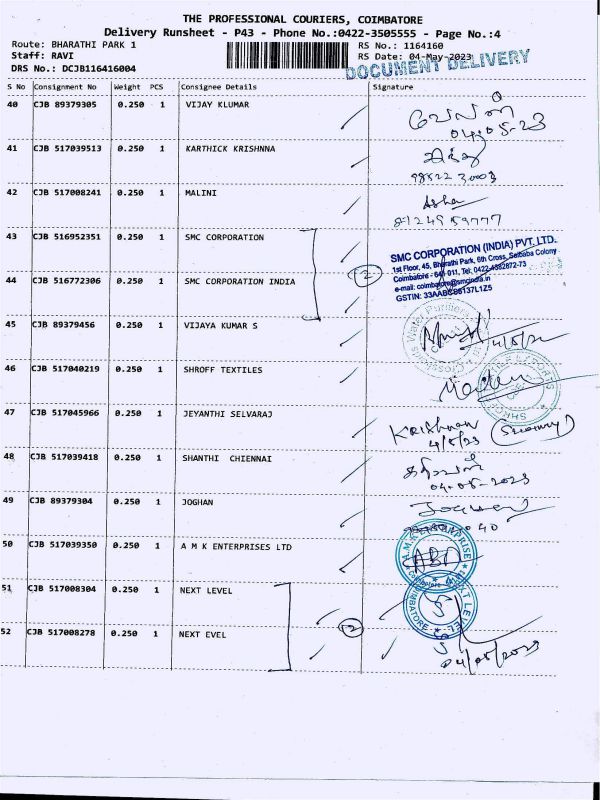 THE PROFESSIONAL COURIERS, COIMBATORE
Delivery Runsheet - P43 - Phone No.:0422-3505555 - Page No.:4
Route: BHARATHI PARK 1 RS No.: 1164160
Staff: RAVI RS Date: 04-May-2023
DRS No.: DCJB116416004 DOCUMENT DELIVERY
S No Consignment No Weight PCS Consignee Details Signature
40 CJB 89379305 0.250 1 VIJAY KLUMAR
04-05-23
41 CJB 517039513 0.250 1 KARTHICK KRISHNNA
42 CJB 517008241 0.250 1 MALINI Asha
8124959777
43 CJB 516952351 0.250 1 SMC CORPORATION
SMC CORPORATION (INDIA) PVT. LTD.
1st Floor, 45, Bharathi Park, 6th Cross, Saibaba Colony
Coimbatore - 641 011, Tel: 0422-
2
e-mail: coimbatore@smcindia.in
44 CJB 516772306 0.250 1 SMC CORPORATION INDIA
GSTIN:
45 CJB 89379456 0.250 1 VIJAYA KUMAR S
46 CJB 517040219 0.250 1 SHROFF TEXTILES
47 CJB 517045966 0.250 1 JEYANTHI SELVARAJ
Krishnan
4/5/23
48 CJB 517039418 0.250 1 SHANTHI CHIENNAI
04-05-2023
49 CJB 89379304 0.250 1 JOGHAN
50 CJB 517039350 0.250 1 A M K ENTERPRISES LTD
51 CJB 517008304 0.250 1 NEXT LEVEL
NEXT LEVEL
COIMBATORE
2
52 CJB 517008278 0.250 1 NEXT EVEL
04/05/2023